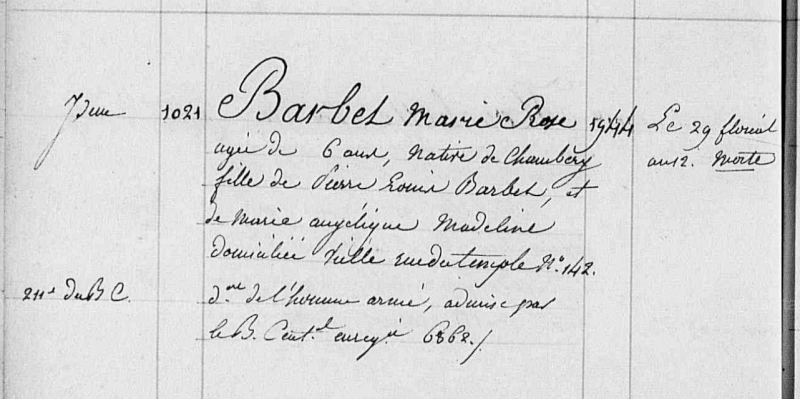 Idem 1021 Barbet Marie Rose 5944 Le 29 floréal
agée de 6 ans, Native de Chambéry an 12. Morte
fille de Pierre Louis Barbet, et
de Marie angélique Madeline
domiciliée Ville rue du temple N.º 142.
211e du B C. d.on de l'homme armé, admise par
le B. Cent.l enreg.é 6862./